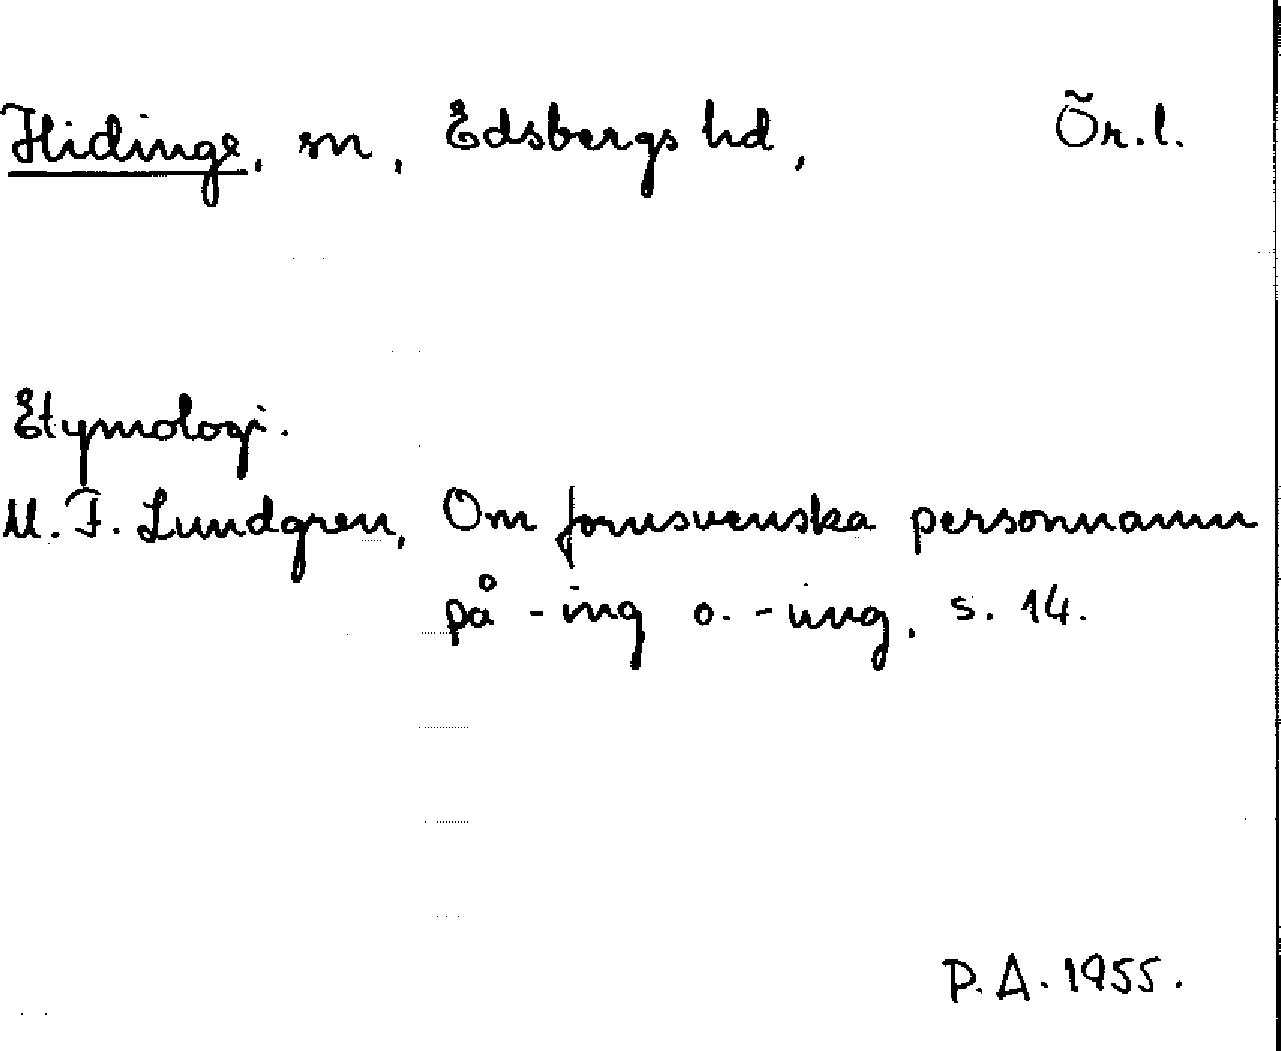 Hidinge, sn, Edsbergs hd, Ör.l.
Etymologi.
M. F. Lundgren, Om fornsvenska personnamn
på -ing o. -ung, s. 14.
P.A. 1955.